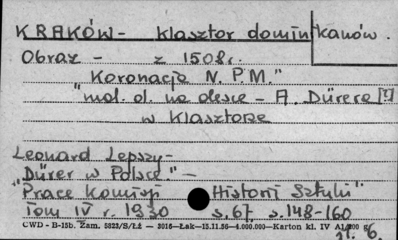 KRAKÓW - klasztor dominikanów.
Obraz - z 1508 r.
"Koronacja N. P. M."
"mal. ol. na desce - A. Dürera [!]
w klasztorze
Leonard Lepszy -
"Dürer w Polsce." -
"Prace Komisji Historii Sztuki"
Tom IV r. 1930 s. 67. s. 148-160
CWD - B-15b. Zam. 5823/S/Łż - 3016 - Łak - 15.11.56 - 4.000.000 - Karton kl. IV